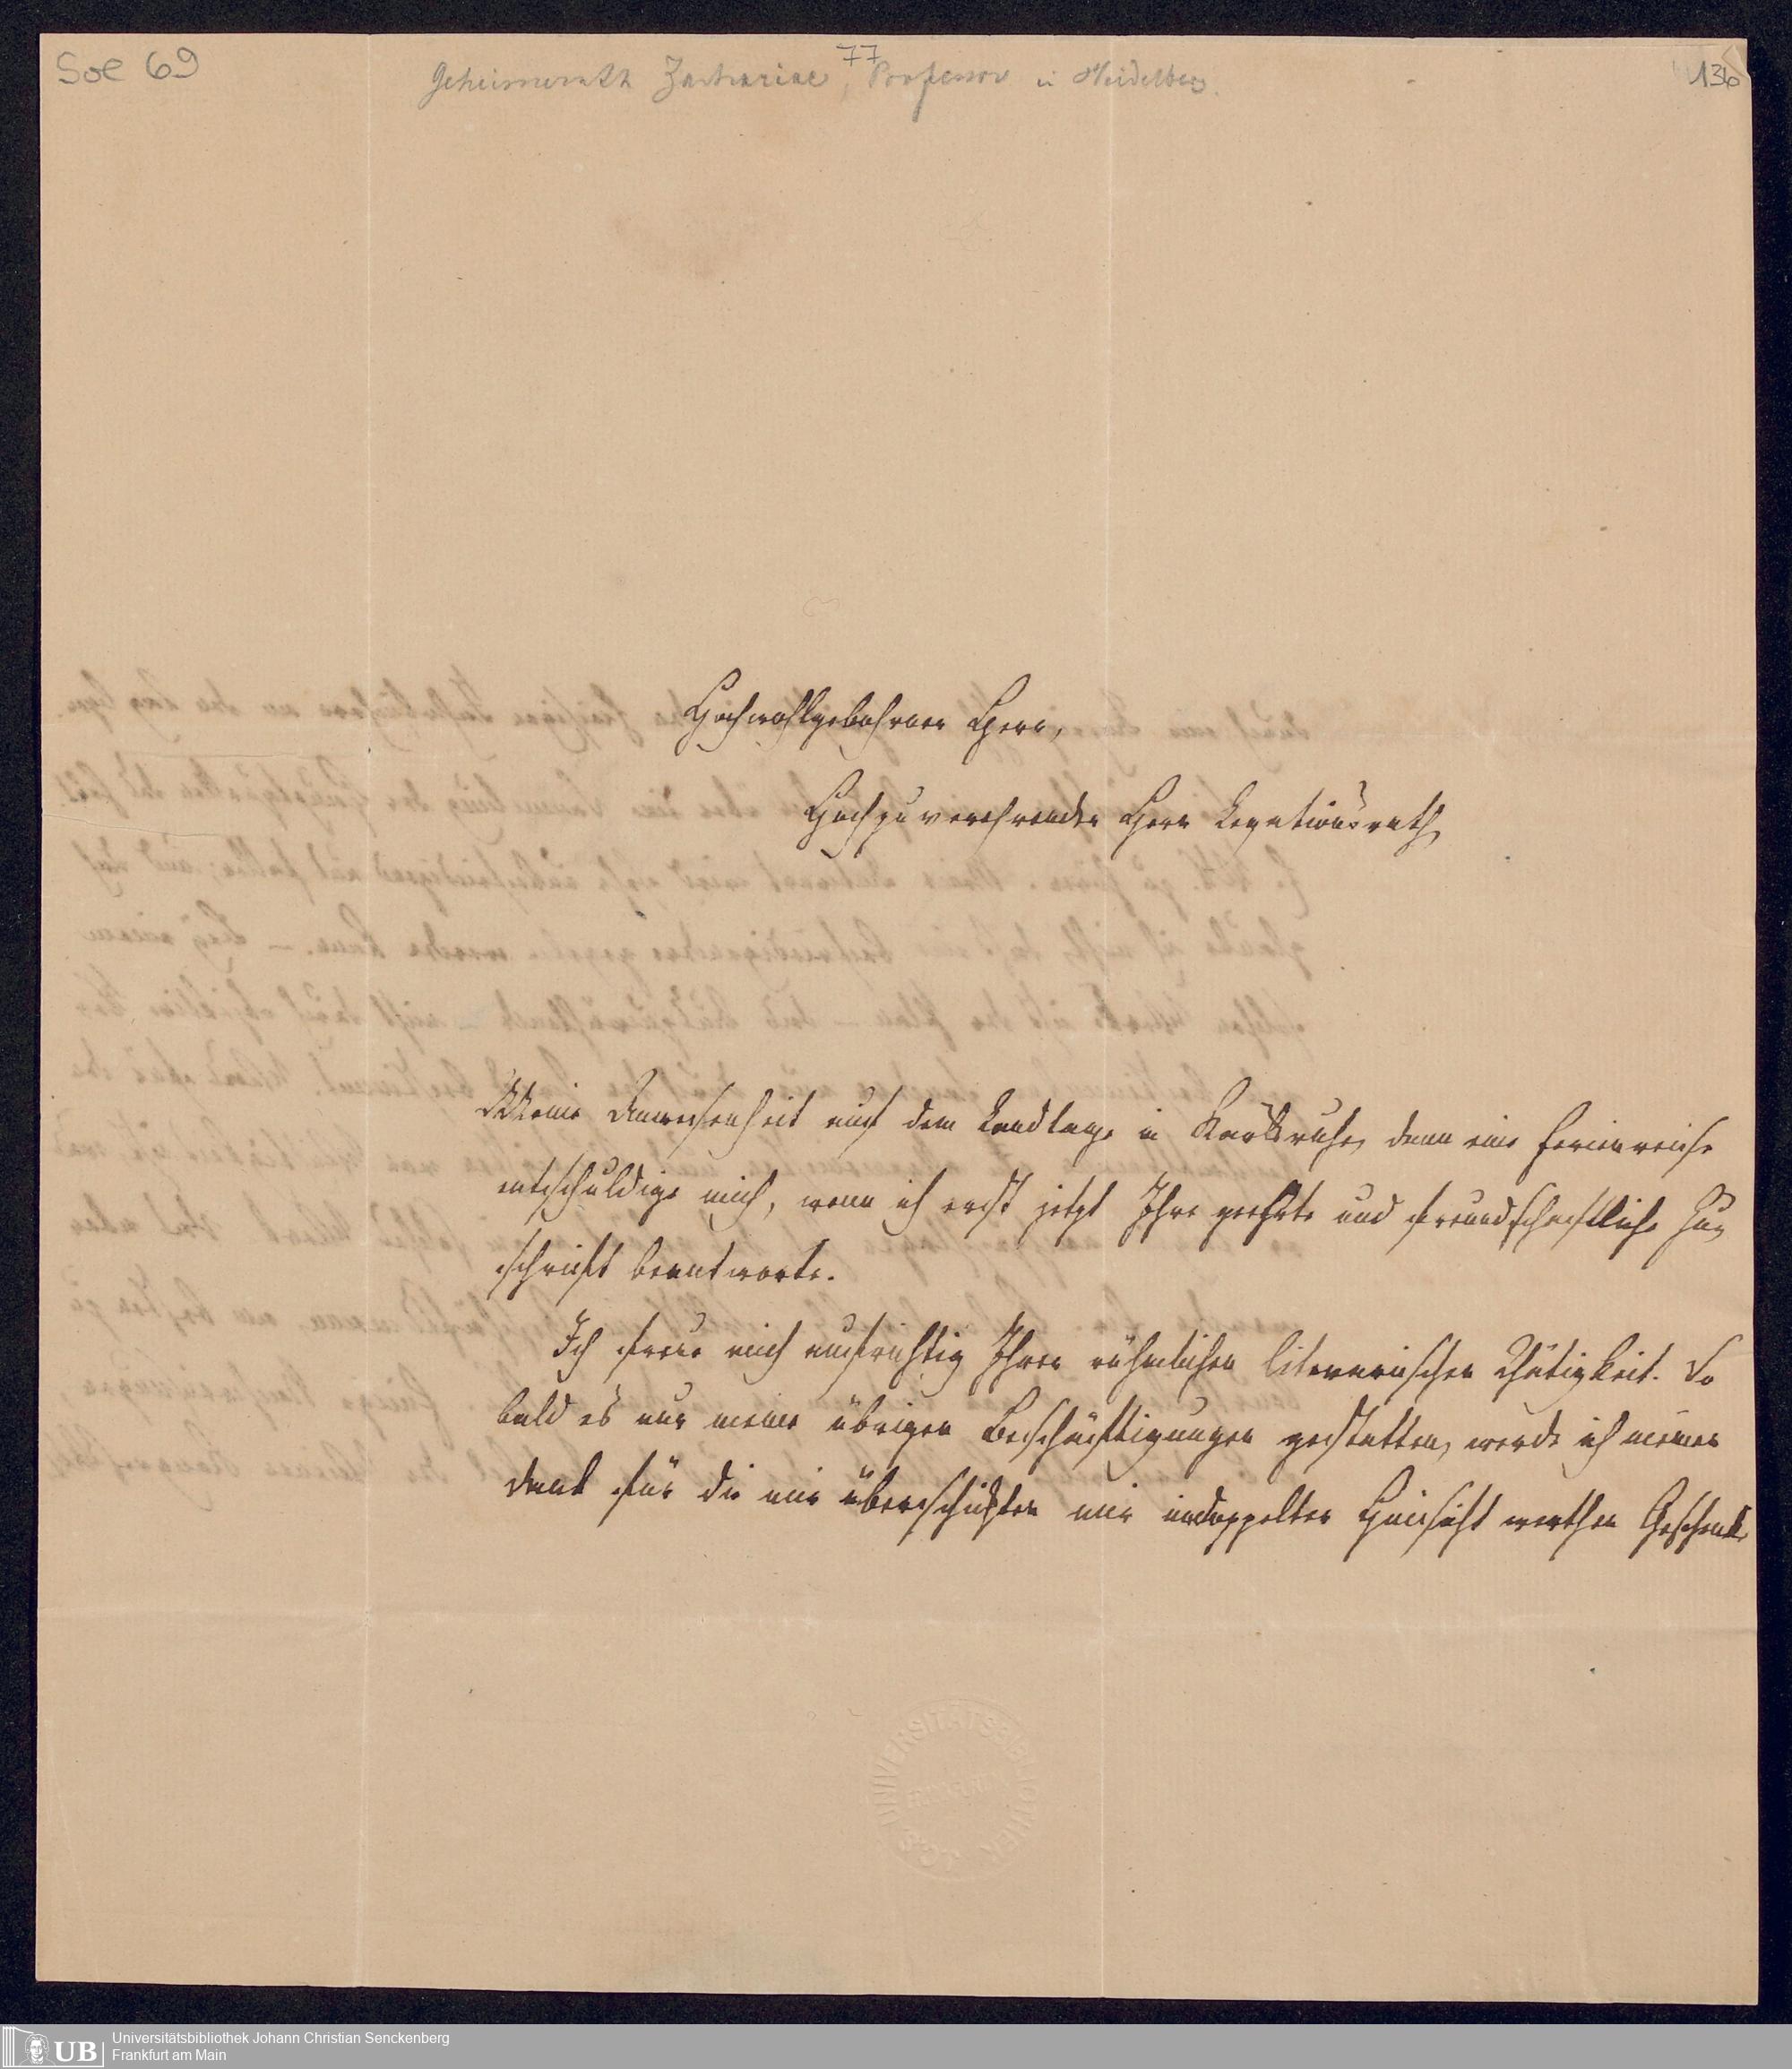 Soe 69
77
136
Geheimerath Zachariae, Professor in Heidelberg.
Hochwohlgebohrner Herr,
Hochzuverehrender Herr Legationsrath,
Meine Anwesenheit auf dem Landtage in Karlsruhe, dann eine Ferienreise
entschuldige mich, wenn ich erst jetzt Ihre geehrte und freundschaftliche Zu-
schrift beantworte.
Ich freue mich aufrichtig Ihrer rühmlichen literarischen Thätigkeit. So
bald es nur meine übrigen Beschäftigungen gestatten, werde ich meinen
Dank für die mir überschickten mir in doppelter Hinsicht werthen Geschenke
UNIVERSITÄTSBIBLIOTHEK
UB
Universitätsbibliothek Johann Christian Senckenberg
Frankfurt am Main